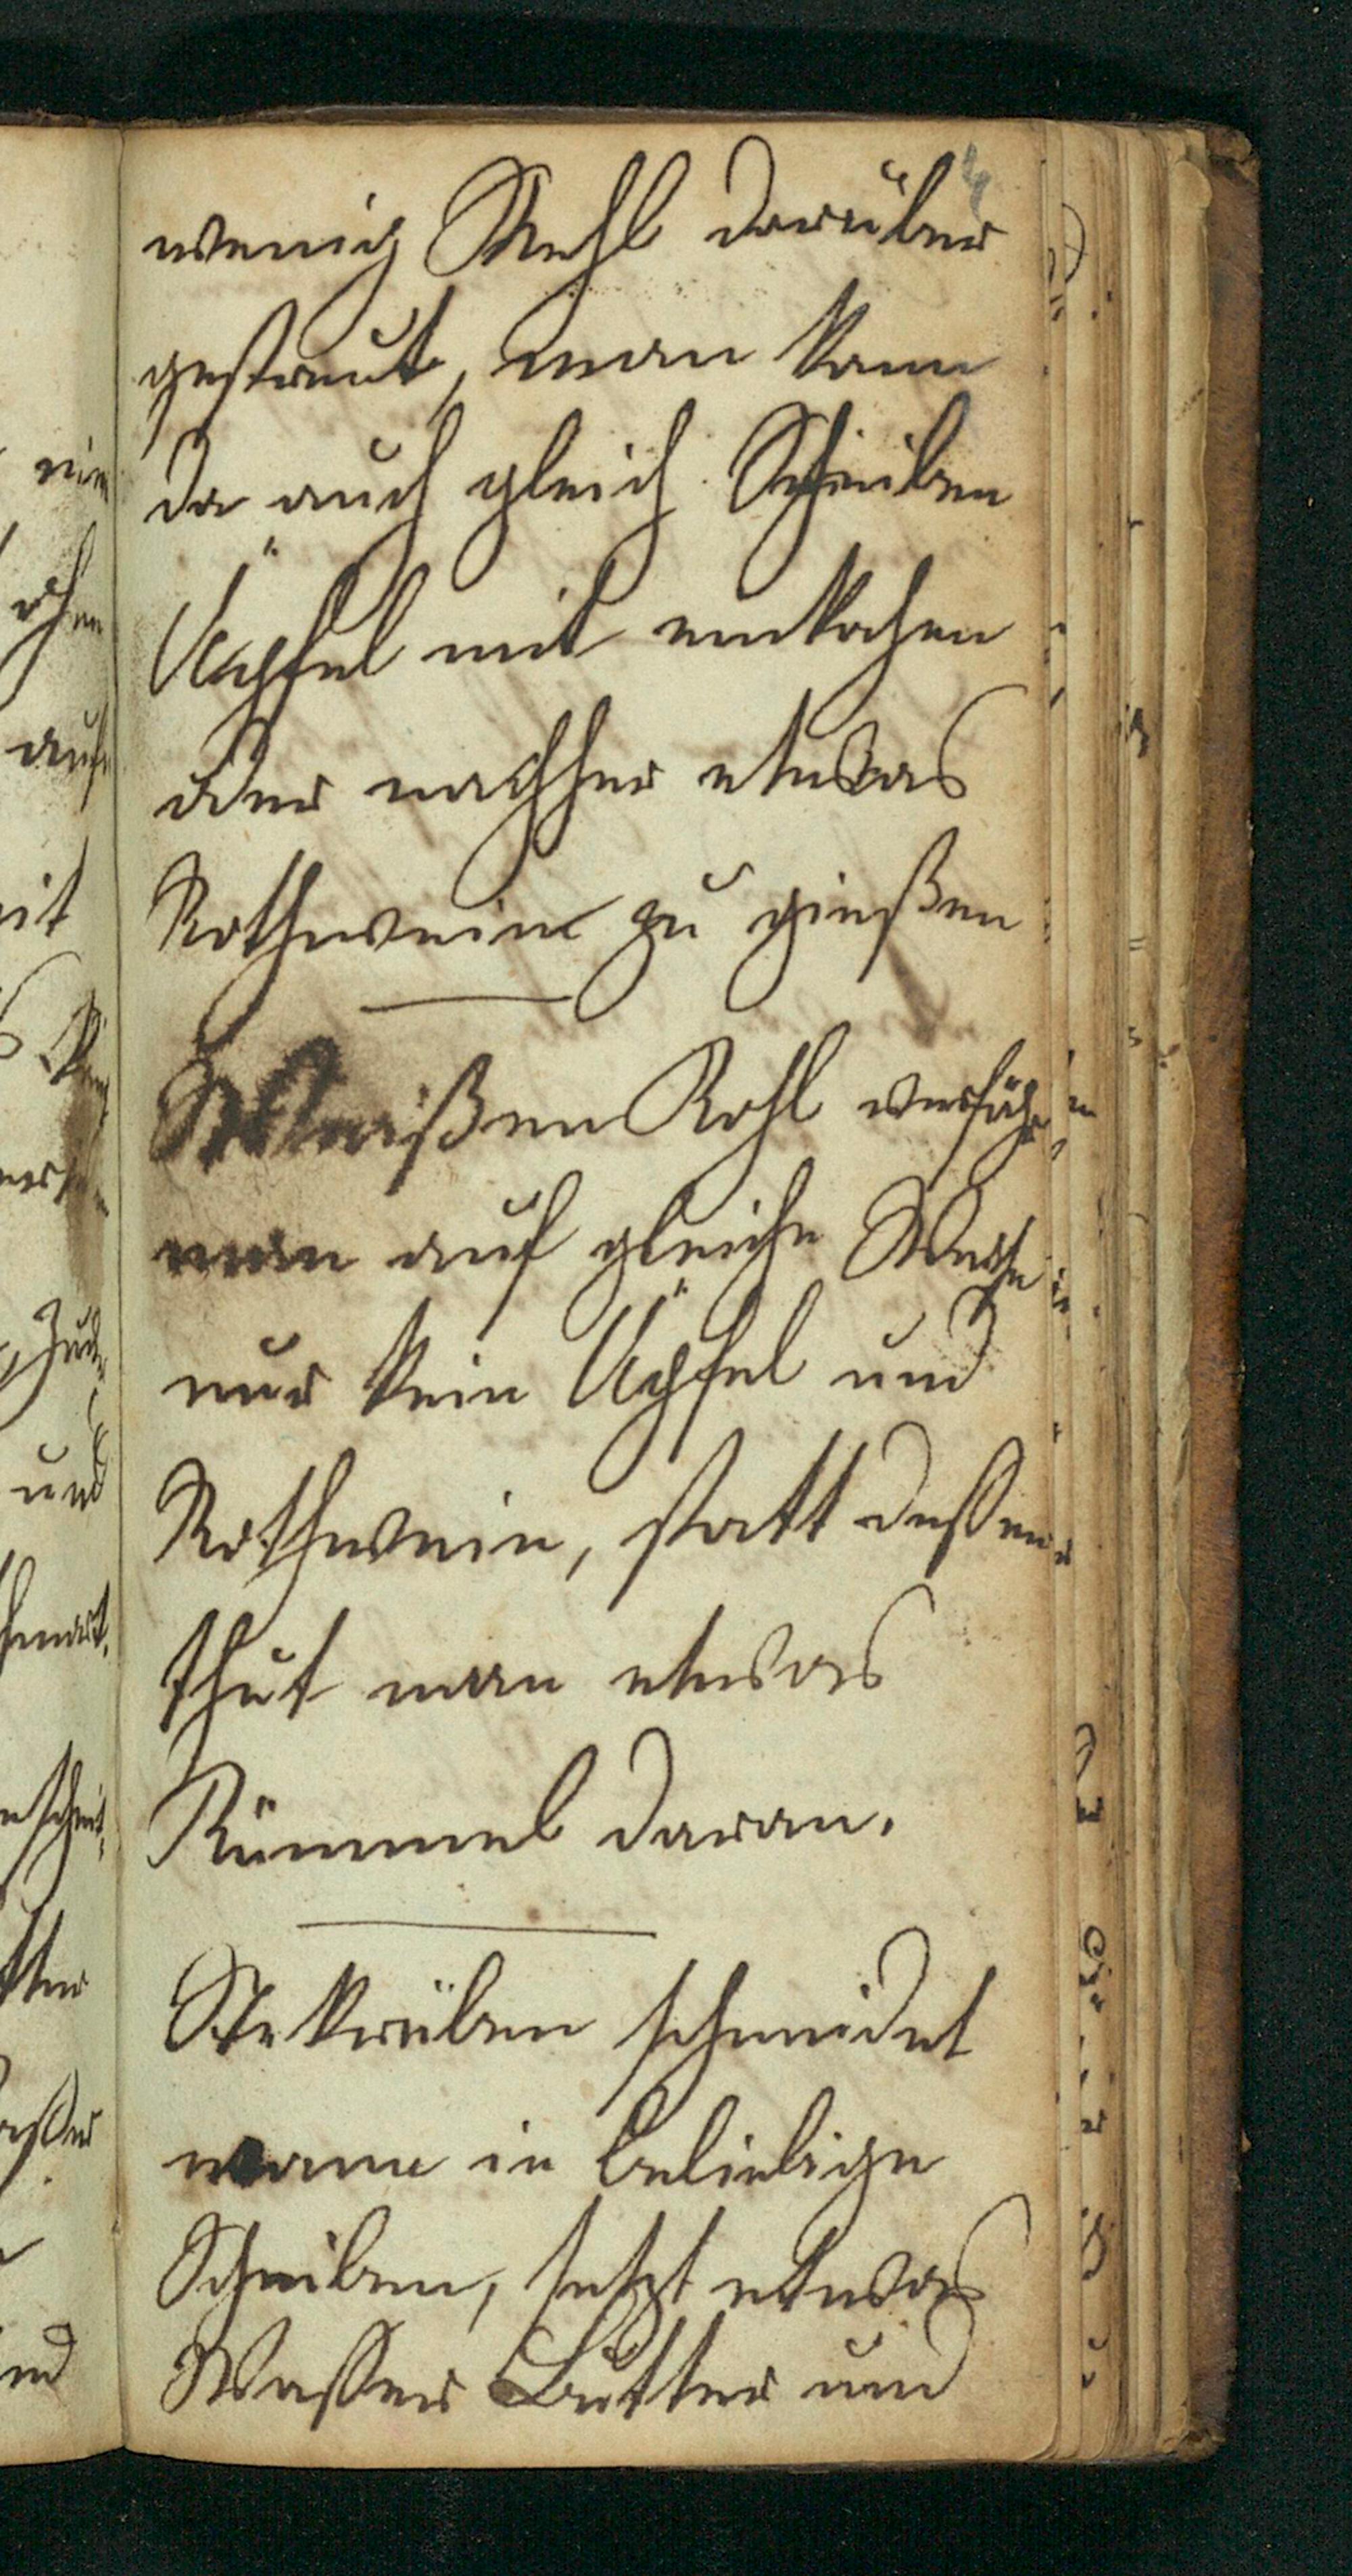 wenig Mehl darüber
gestreut, man kann
da auch gleich Scheiben
Äpfel mit einkochen
oder nachher etwas
Rothwein zu gießen
Weißen Kohl verfähr
man auf gleiche Weise
nur kein Äpfel und
Rothwein, statt dessen
thut man etwas
Kümmel daran.
Stekrüben schneidet
mann in beliebige
Scheiben, setzt etwas
Wasser Butter und